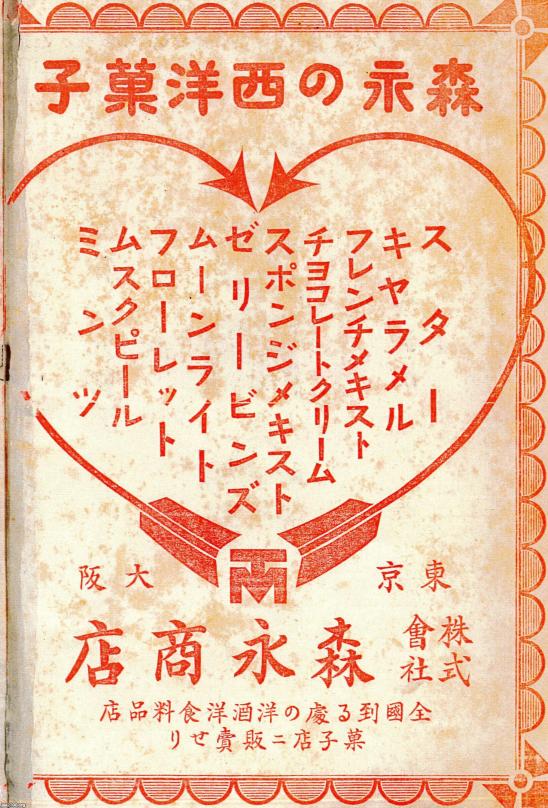 森永の西洋菓子
スター
キャラメル
フレンチメキスト
チヨコレートクリーム
スポンジメキスト
ゼリービンズ
ムーンライト
フローレット
ムスクピール
ミンツ
TM
東京
大阪
株式會社
森永商店
全國到る處の洋酒洋食料品店
菓子店ニ販賣せり